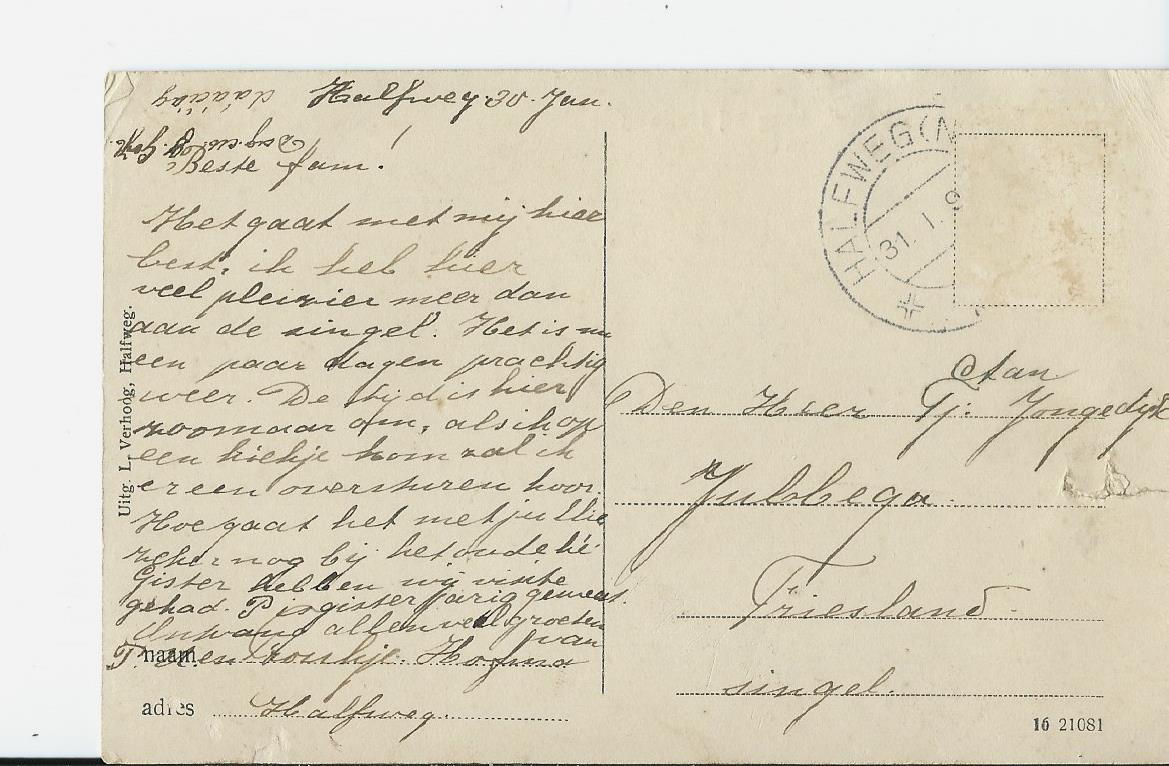 Halfweg 30 Jan.
Beste fam!
Het gaat met mij hier
best, ik heb hier
veel plezier meer dan
aan de singel. Het is nu
een paar dagen prachtig
weer. De tijd is hier
zoomaar om, als ik op
een kiekje kom zal ik
er een oversturen hoor.
Hoe gaat het met jullie
zeker nog bij het oude hé
Gister hebben wij visite
gehad. P is gister jarig geweest.
Ontvang allen veel groeten
van
naam en Hofma
adres Halfweg.
Uitg. L. Verhoog, Halfweg.
HALFWEG (N
31. 1. 9
Aan
Den Heer Tj. Jongedijk
Jubbega
Friesland
singel.
16 21081